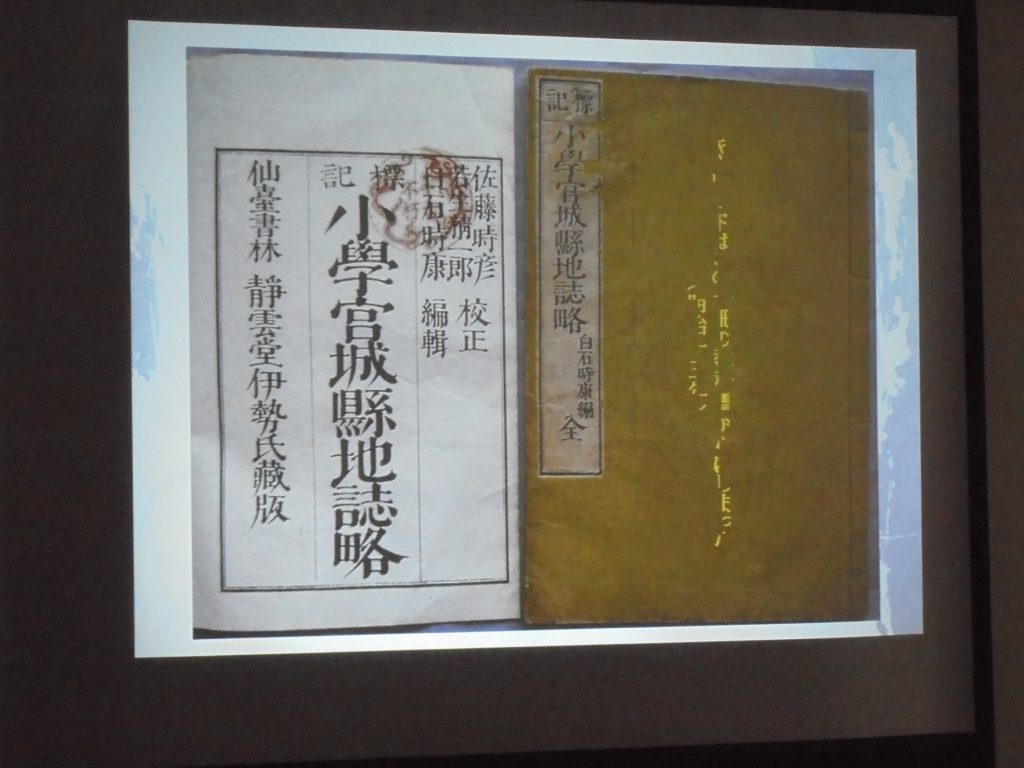 佐藤時彦
若生精一郎 校正
白石時康 編輯
標記
小學宮城縣地誌略
仙臺書林 靜雲堂伊勢氏藏版
標記
小學宮城縣地誌略 白石時康編 全